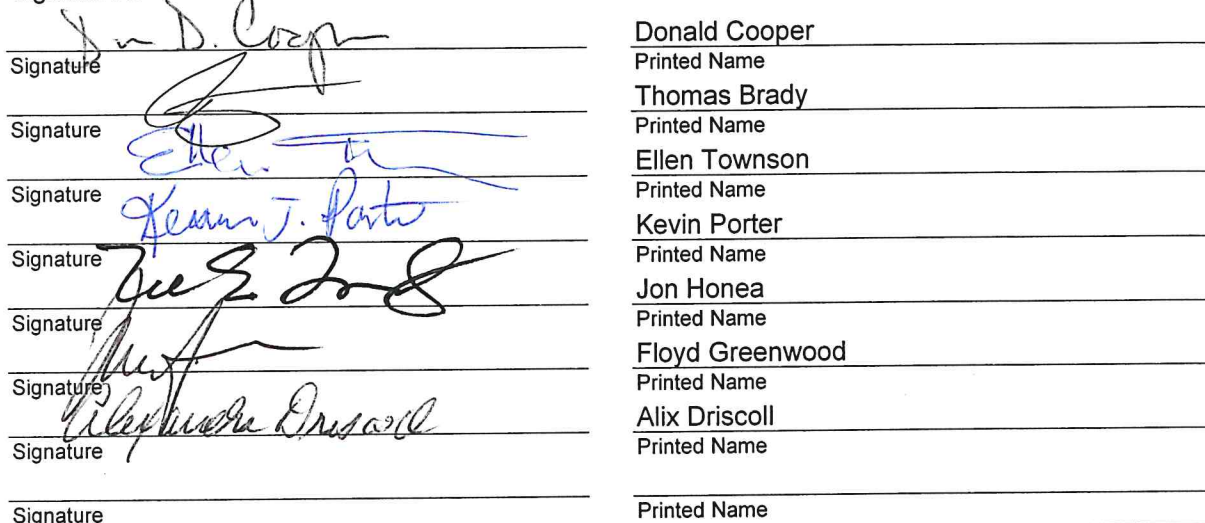 Don D. Cooper Donald Cooper
Signature Printed Name
Thomas Brady
Signature Printed Name
Ellen Ellen Townson
Signature Printed Name
Kevin J. Porter Kevin Porter
Signature Printed Name
Jon Honea
Signature Printed Name
Floyd Greenwood
Signature Printed Name
Alexandra Driscoll Alix Driscoll
Signature Printed Name
Signature Printed Name